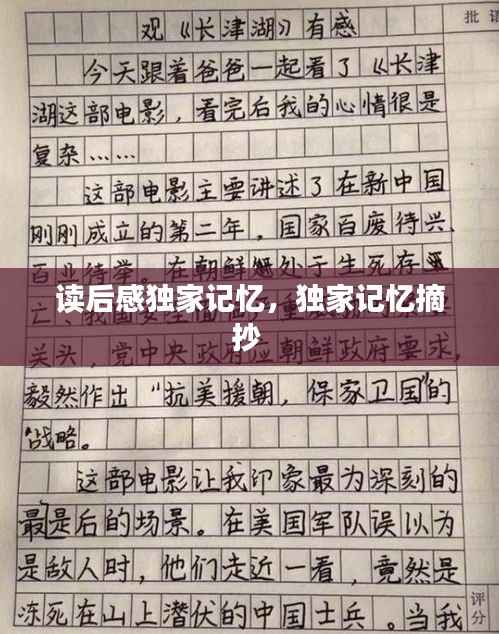 批语
观《长津湖》有感
今天跟着爸爸一起看了《长津
湖这部电影，看完后我的心情很是
复杂……
这部电影主要讲述了在新中国
刚刚成立的第二年，国家百废待兴、
百业待举。在朝鲜处于生死存
亡、我国安全面
读后感独家记忆，独家记忆摘
抄
关头，党中央政府应朝鲜政府要求，
毅然作出“抗美援朝，保家卫国”的
战略。
这部电影让我印象最为深刻的
最是后的场景。在美国军队误以为
是敌人时，他们走近一看，竟然是
冻死在山上潜伏的中国士兵。当我
评
分